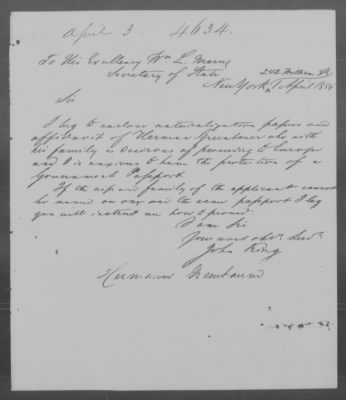 April 3. 4634.
To His Excellency Wm L. Marcy
Secretary of State
242 William St
New York, 1 April 1854
Sir
I beg to enclose naturalization papers and
affidavit of Herman Greenbaum who with
his family is desirous of proceeding to Europe
and is anxious to have the protection of a
Government Passport
If the wife and family of the applicant cannot
be named on one and the same passport I beg
you will instruct me how to proceed.
I am Sir
Your most obdt Servt
John King
Hermann